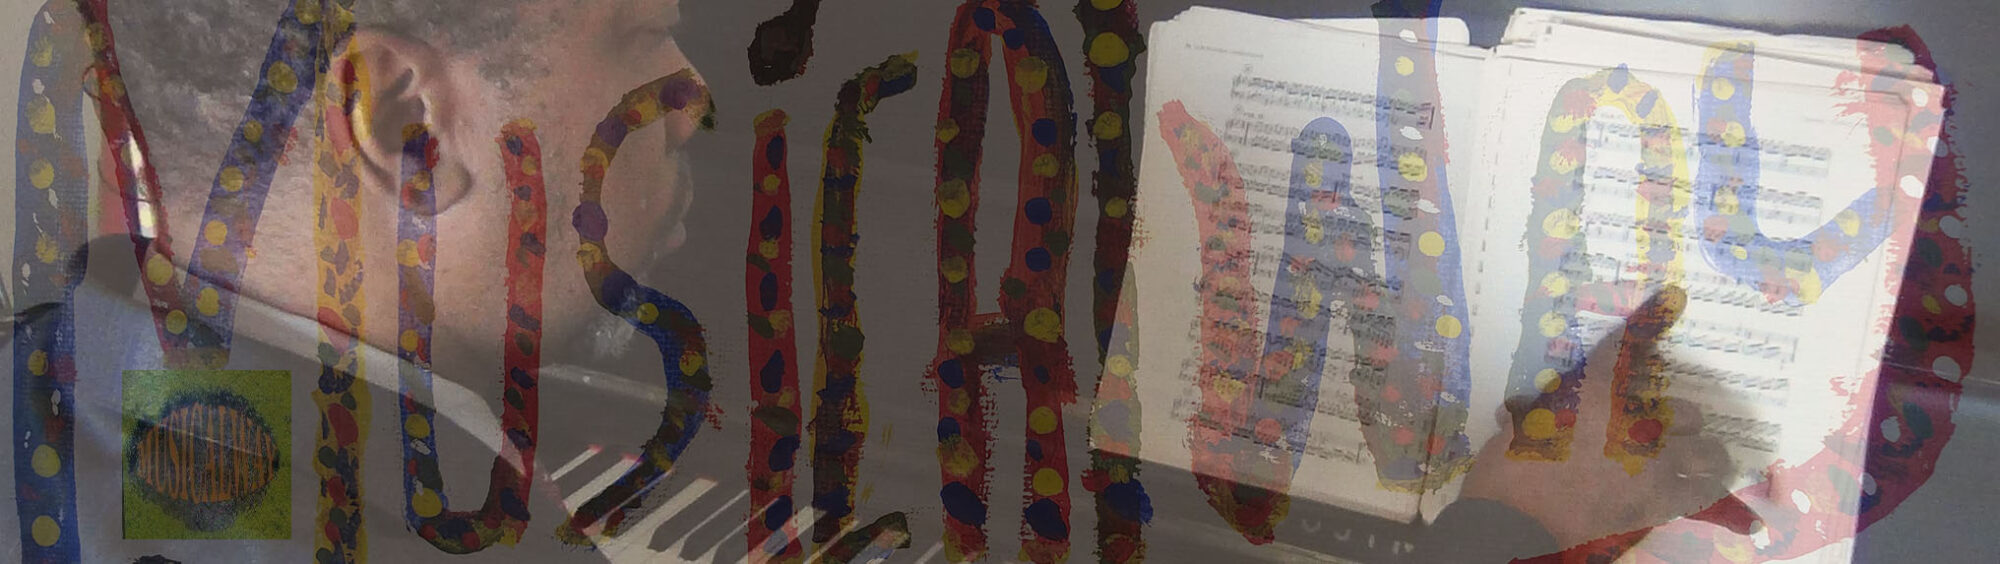 MUSiCAlWAY
MUSICALWAY